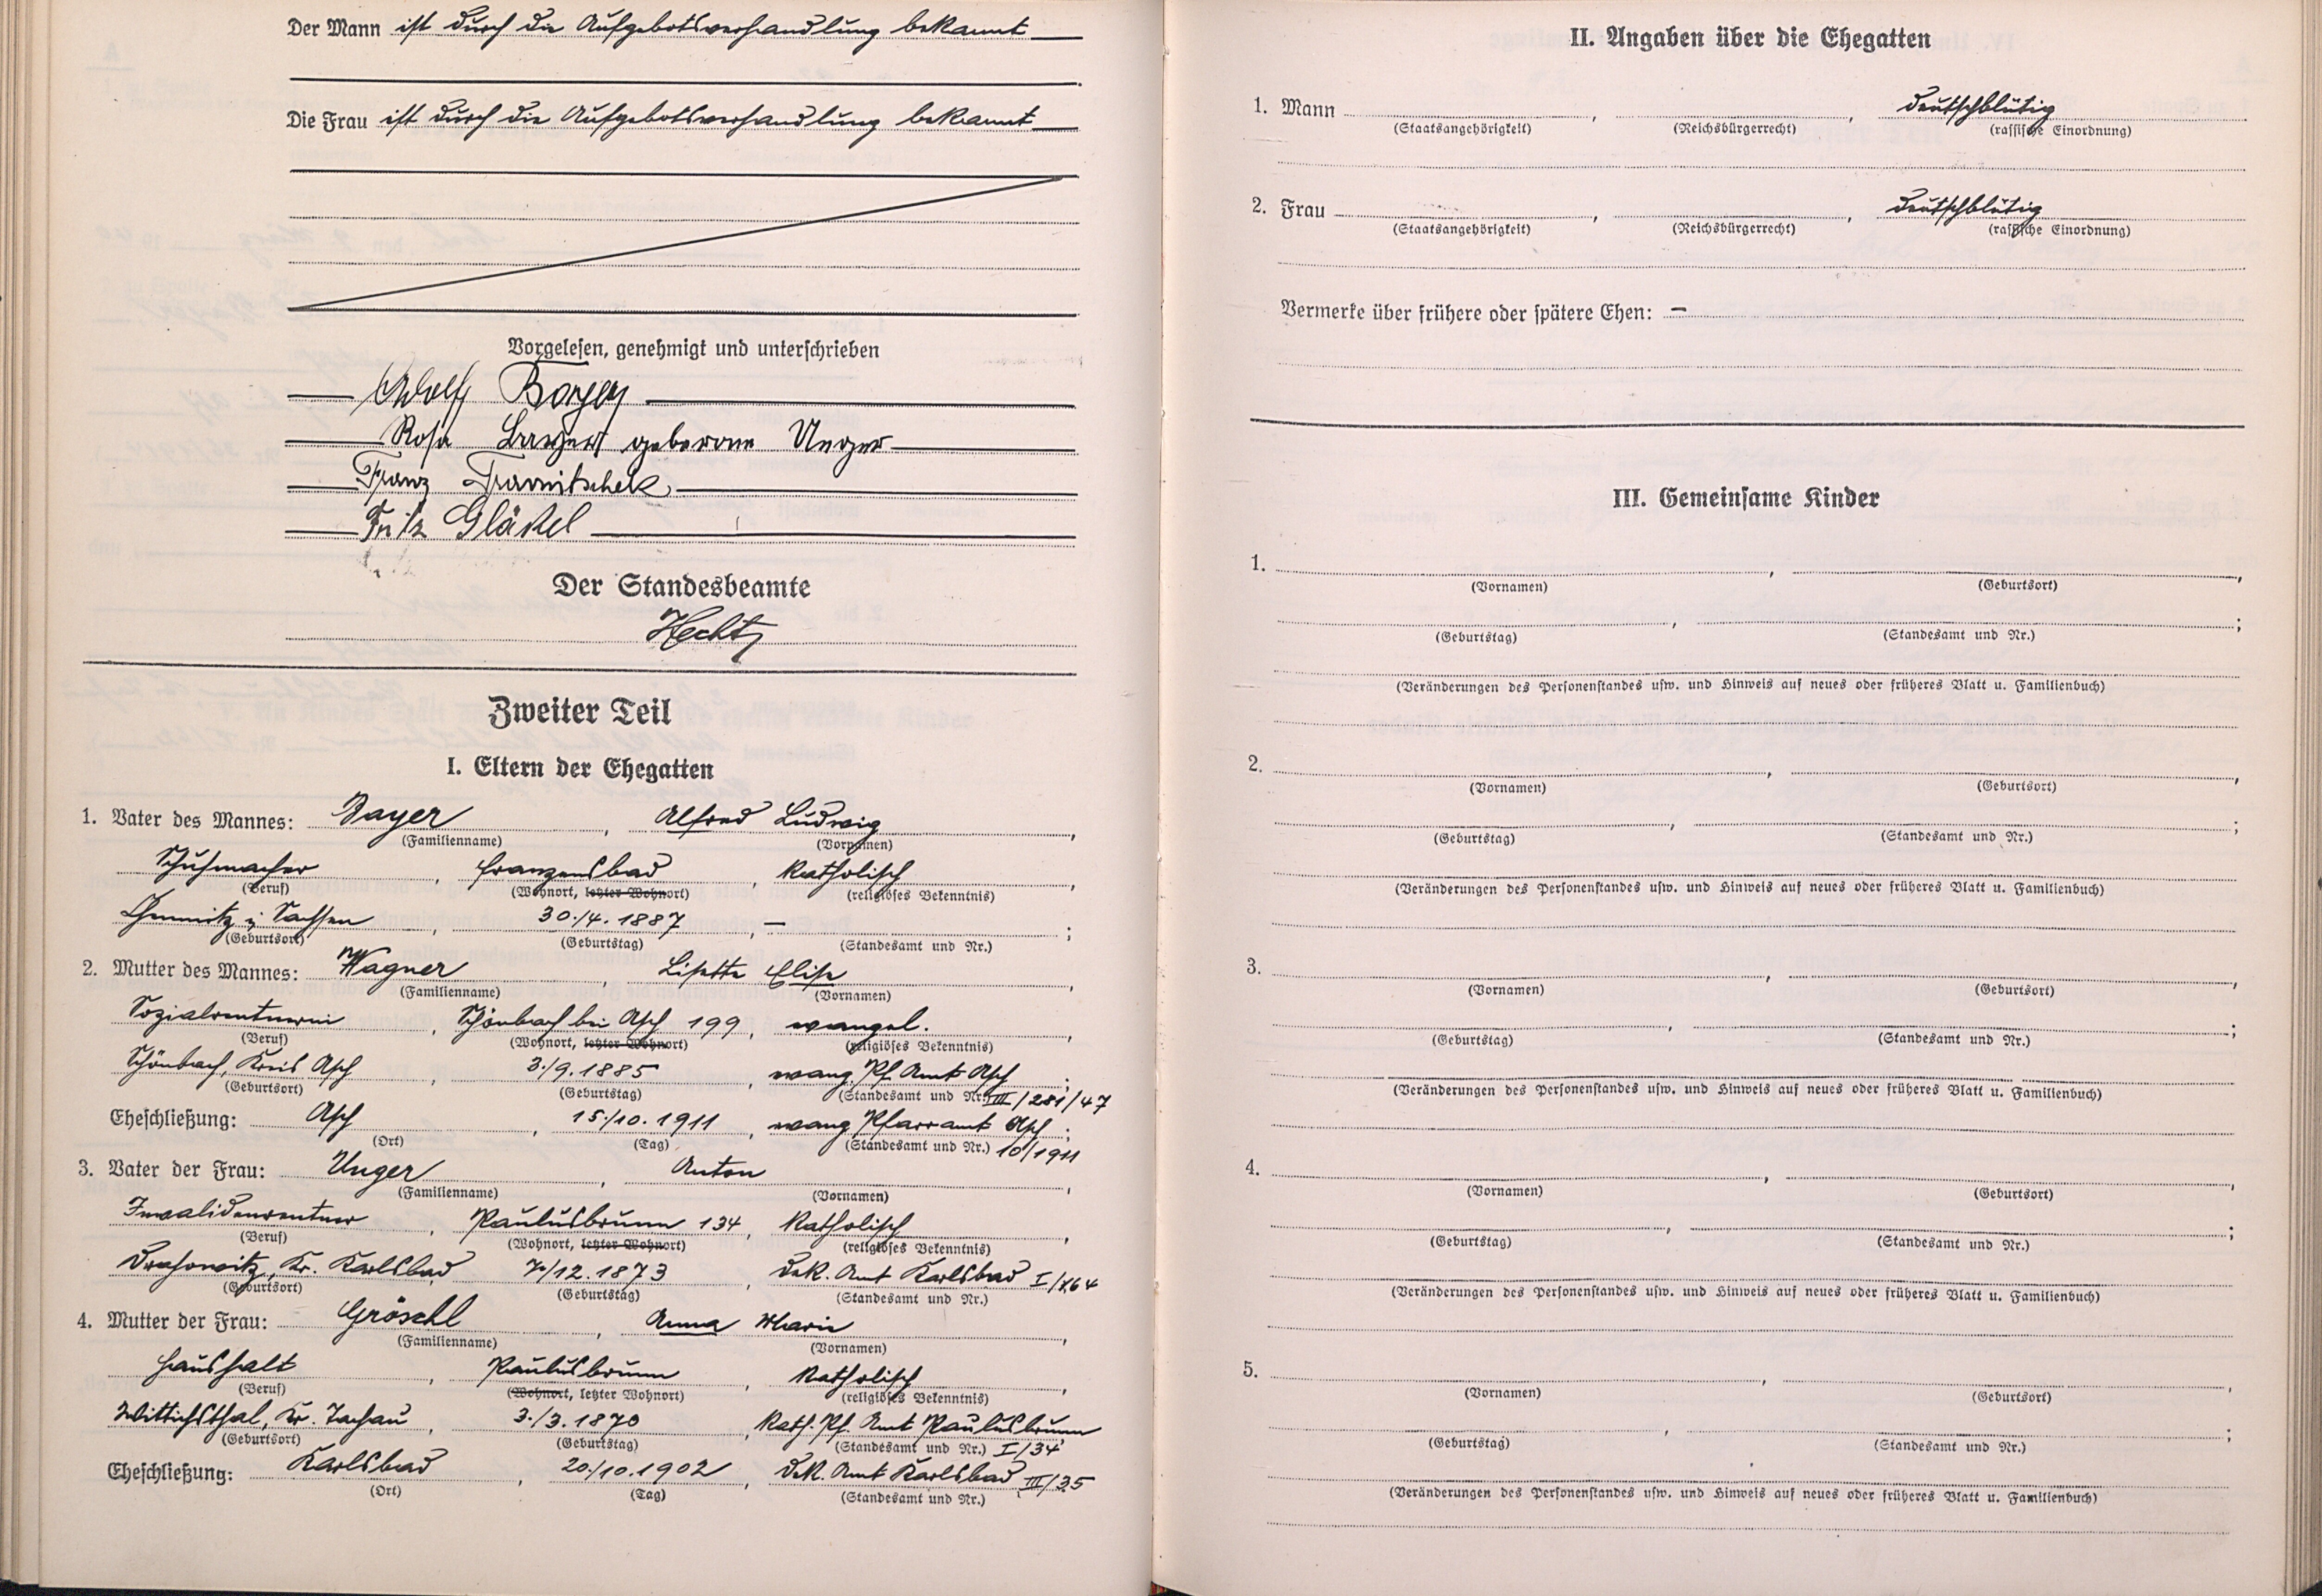 Der Mann ist durch die Aufgebotsverhandlung bekannt
Die Frau ist durch die Aufgebotsverhandlung bekannt
Vorgelesen, genehmigt und unterschrieben
Adolf Bayer
Rosa Bayer geborene Unger
Franz Trawitschek
Fritz Gläßel
Der Standesbeamte
Hecht
Zweiter Teil
I. Eltern der Ehegatten
1. Vater des Mannes: Bayer, Alfred Ludwig,
(Familienname) (Vornamen)
Schuhmacher, Franzensbad, katholisch,
(Beruf) (Wohnort, letzter Wohnort) (religiöses Bekenntnis)
Chemnitz i. Sachsen, 30./4. 1887, —;
(Geburtsort) (Geburtstag) (Standesamt und Nr.)
2. Mutter des Mannes: Wagner, Lisette Elise,
(Familienname) (Vornamen)
Sozialrentnerin, Schönbach bei Asch 199, evangel.,
(Beruf) (Wohnort, letzter Wohnort) (religiöses Bekenntnis)
Schönbach, Kreis Asch, 3./9. 1885, evang. Pf. Amt Asch;
(Geburtsort) (Geburtstag) (Standesamt und Nr.) III/281/47
Eheschließung: Asch, 15./10. 1911, evang. Pfarramt Asch;
(Ort) (Tag) (Standesamt und Nr.) 10/1911
3. Vater der Frau: Unger, Anton,
(Familienname) (Vornamen)
Invalidenrentner, Paulusbrunn 134, katholisch,
(Beruf) (Wohnort, letzter Wohnort) (religiöses Bekenntnis)
Drahowitz, Kr. Karlsbad, 7./12. 1873, Dek. Amt Karlsbad I/164
(Geburtsort) (Geburtstag) (Standesamt und Nr.)
4. Mutter der Frau: Gröschl, Anna Marie,
(Familienname) (Vornamen)
Haushalt, Paulusbrunn, katholisch,
(Beruf) (Wohnort, letzter Wohnort) (religiöses Bekenntnis)
Wittichsthal, Kr. Tachau, 3./3. 1870, Kath. Pf. Amt Paulusbrunn
(Geburtsort) (Geburtstag) (Standesamt und Nr.) I/34
Eheschließung: Karlsbad, 20./10. 1902, Dek. Amt Karlsbad III/35
(Ort) (Tag) (Standesamt und Nr.)
II. Angaben über die Ehegatten
1. Mann , , deutschblütig
(Staatsangehörigkeit) (Reichsbürgerrecht) (rassische Einordnung)
2. Frau , , deutschblütig
(Staatsangehörigkeit) (Reichsbürgerrecht) (rassische Einordnung)
Vermerke über frühere oder spätere Ehen: —
III. Gemeinsame Kinder
1. , ,
(Vornamen) (Geburtsort)
, ;
(Geburtstag) (Standesamt und Nr.)
(Veränderungen des Personenstandes usw. und Hinweis auf neues oder früheres Blatt u. Familienbuch)
2. , ,
(Vornamen) (Geburtsort)
, ;
(Geburtstag) (Standesamt und Nr.)
(Veränderungen des Personenstandes usw. und Hinweis auf neues oder früheres Blatt u. Familienbuch)
3. , ,
(Vornamen) (Geburtsort)
, ;
(Geburtstag) (Standesamt und Nr.)
(Veränderungen des Personenstandes usw. und Hinweis auf neues oder früheres Blatt u. Familienbuch)
4. , ,
(Vornamen) (Geburtsort)
, ;
(Geburtstag) (Standesamt und Nr.)
(Veränderungen des Personenstandes usw. und Hinweis auf neues oder früheres Blatt u. Familienbuch)
5. , ,
(Vornamen) (Geburtsort)
, ;
(Geburtstag) (Standesamt und Nr.)
(Veränderungen des Personenstandes usw. und Hinweis auf neues oder früheres Blatt u. Familienbuch)